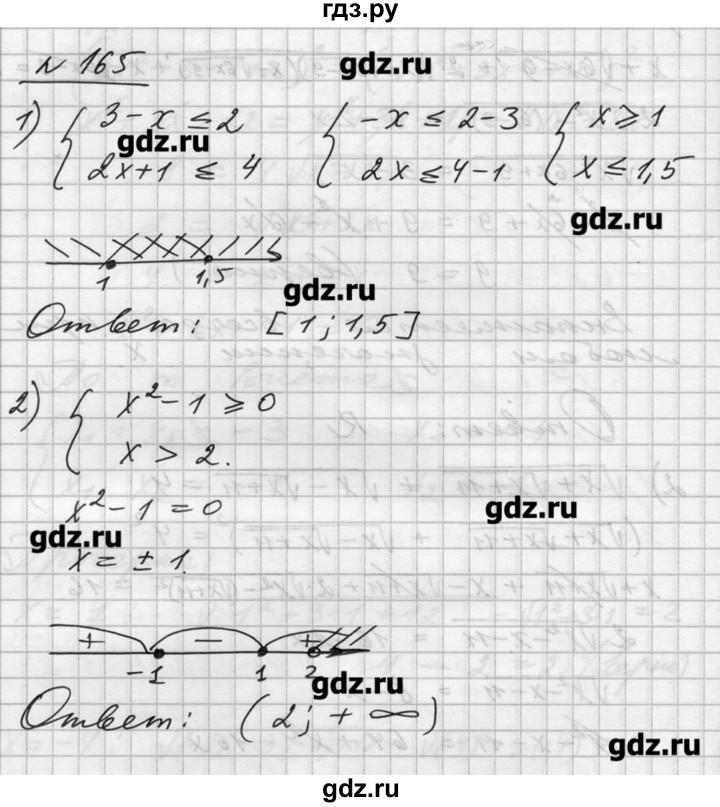 гдз.ру
N 165
gdz.ru
1) { 3 - x ≤ 2 { -x ≤ 2 - 3 { x ≥ 1
gdz.ru
2x + 1 ≤ 4 2x ≤ 4 - 1 x ≤ 1,5
gdz.ru
1 1,5
gdz.ru
Ответ: [1; 1,5]
2) { x² - 1 ≥ 0
x > 2.
x² - 1 = 0
gdz.ru
gdz.ru
x = ± 1.
+ - +
-1 1 2
gdz.ru
Ответ: (2; + ∞)
gdz.ru
gdz.ru